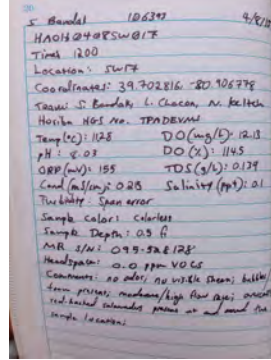 S Bandal 126397 9/8/12
HA01H0408SW017
Time: 1200
Location: SW17
Coordinates: 39.702816, -80.906778
Team: S. Bandak, L. Chacon, N.
Horiba HGS No. TPADEVMS
Temp (°C): 11.28 DO (mg/L): 12.13
pH: 8.03 DO (%): 114.5
ORP (mV): 155 TDS (g/L): 0.139
Cond (mS/cm): 0.213 Salinity (ppt): 0.1
Turbidity: Span error
Sample Color: Colorless
Sample Depth: 0.5 ft
MR S/N: 095-528128
Headspace: 0.0 ppm VOCs
Comments: no odor, no visible sheen; bubbles/
foam present; moderate/high flow rate;
red-backed salamander present at and around the
sample location;